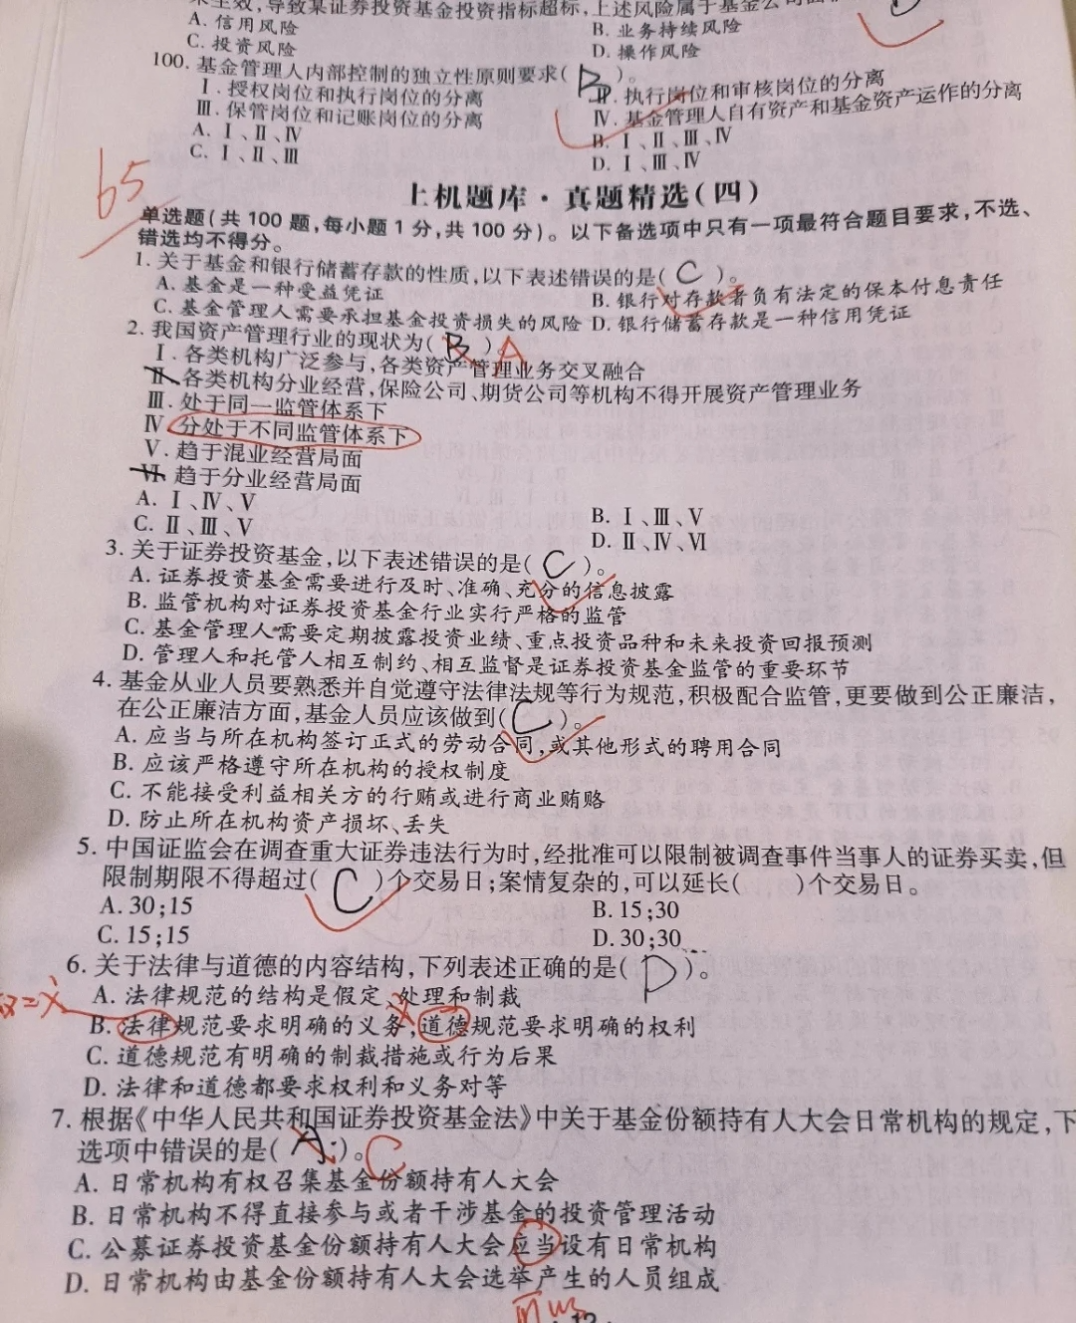 未生效,导致某证券投资基金投资指标超标,上述风险属于基金公司面
A. 信用风险 B. 业务持续风险
C. 投资风险 D. 操作风险
100. 基金管理人内部控制的独立性原则要求( B )。
Ⅰ. 授权岗位和执行岗位的分离 Ⅱ. 执行岗位和审核岗位的分离
Ⅲ. 保管岗位和记账岗位的分离 Ⅳ. 基金管理人自有资产和基金资产运作的分离
A. Ⅰ、Ⅱ、Ⅳ B. Ⅰ、Ⅱ、Ⅲ、Ⅳ
C. Ⅰ、Ⅱ、Ⅲ D. Ⅰ、Ⅲ、Ⅳ
65
上机题库·真题精选(四)
单选题(共 100 题,每小题 1 分,共 100 分)。以下备选项中只有一项最符合题目要求,不选、
错选均不得分。
1. 关于基金和银行储蓄存款的性质,以下表述错误的是( C )。
A. 基金是一种受益凭证 B. 银行对存款者负有法定的保本付息责任
C. 基金管理人需要承担基金投资损失的风险 D. 银行储蓄存款是一种信用凭证
2. 我国资产管理行业的现状为( B )。A
Ⅰ. 各类机构广泛参与,各类资产管理业务交叉融合
Ⅱ. 各类机构分业经营,保险公司、期货公司等机构不得开展资产管理业务
Ⅲ. 处于同一监管体系下
Ⅳ. 分处于不同监管体系下
Ⅴ. 趋于混业经营局面
Ⅵ. 趋于分业经营局面
A. Ⅰ、Ⅳ、Ⅴ B. Ⅰ、Ⅲ、Ⅴ
C. Ⅱ、Ⅲ、Ⅴ D. Ⅱ、Ⅳ、Ⅵ
3. 关于证券投资基金,以下表述错误的是( C )。
A. 证券投资基金需要进行及时、准确、充分的信息披露
B. 监管机构对证券投资基金行业实行严格的监管
C. 基金管理人需要定期披露投资业绩、重点投资品种和未来投资回报预测
D. 管理人和托管人相互制约、相互监督是证券投资基金监管的重要环节
4. 基金从业人员要熟悉并自觉遵守法律法规等行为规范,积极配合监管,更要做到公正廉洁,
在公正廉洁方面,基金人员应该做到( C )。
A. 应当与所在机构签订正式的劳动合同,或其他形式的聘用合同
B. 应该严格遵守所在机构的授权制度
C. 不能接受利益相关方的行贿或进行商业贿赂
D. 防止所在机构资产损坏、丢失
5. 中国证监会在调查重大证券违法行为时,经批准可以限制被调查事件当事人的证券买卖,但
限制期限不得超过( C )个交易日;案情复杂的,可以延长( )个交易日。
A. 30;15 B. 15;30
C. 15;15 D. 30;30
6. 关于法律与道德的内容结构,下列表述正确的是( D )。
A. 法律规范的结构是假定、处理和制裁
B. 法律规范要求明确的义务;道德规范要求明确的权利
C. 道德规范有明确的制裁措施或行为后果
D. 法律和道德都要求权利和义务对等
7. 根据《中华人民共和国证券投资基金法》中关于基金份额持有人大会日常机构的规定,下
选项中错误的是( A )。C
A. 日常机构有权召集基金份额持有人大会
B. 日常机构不得直接参与或者干涉基金的投资管理活动
C. 公募证券投资基金份额持有人大会应当设有日常机构
D. 日常机构由基金份额持有人大会选举产生的人员组成
可以